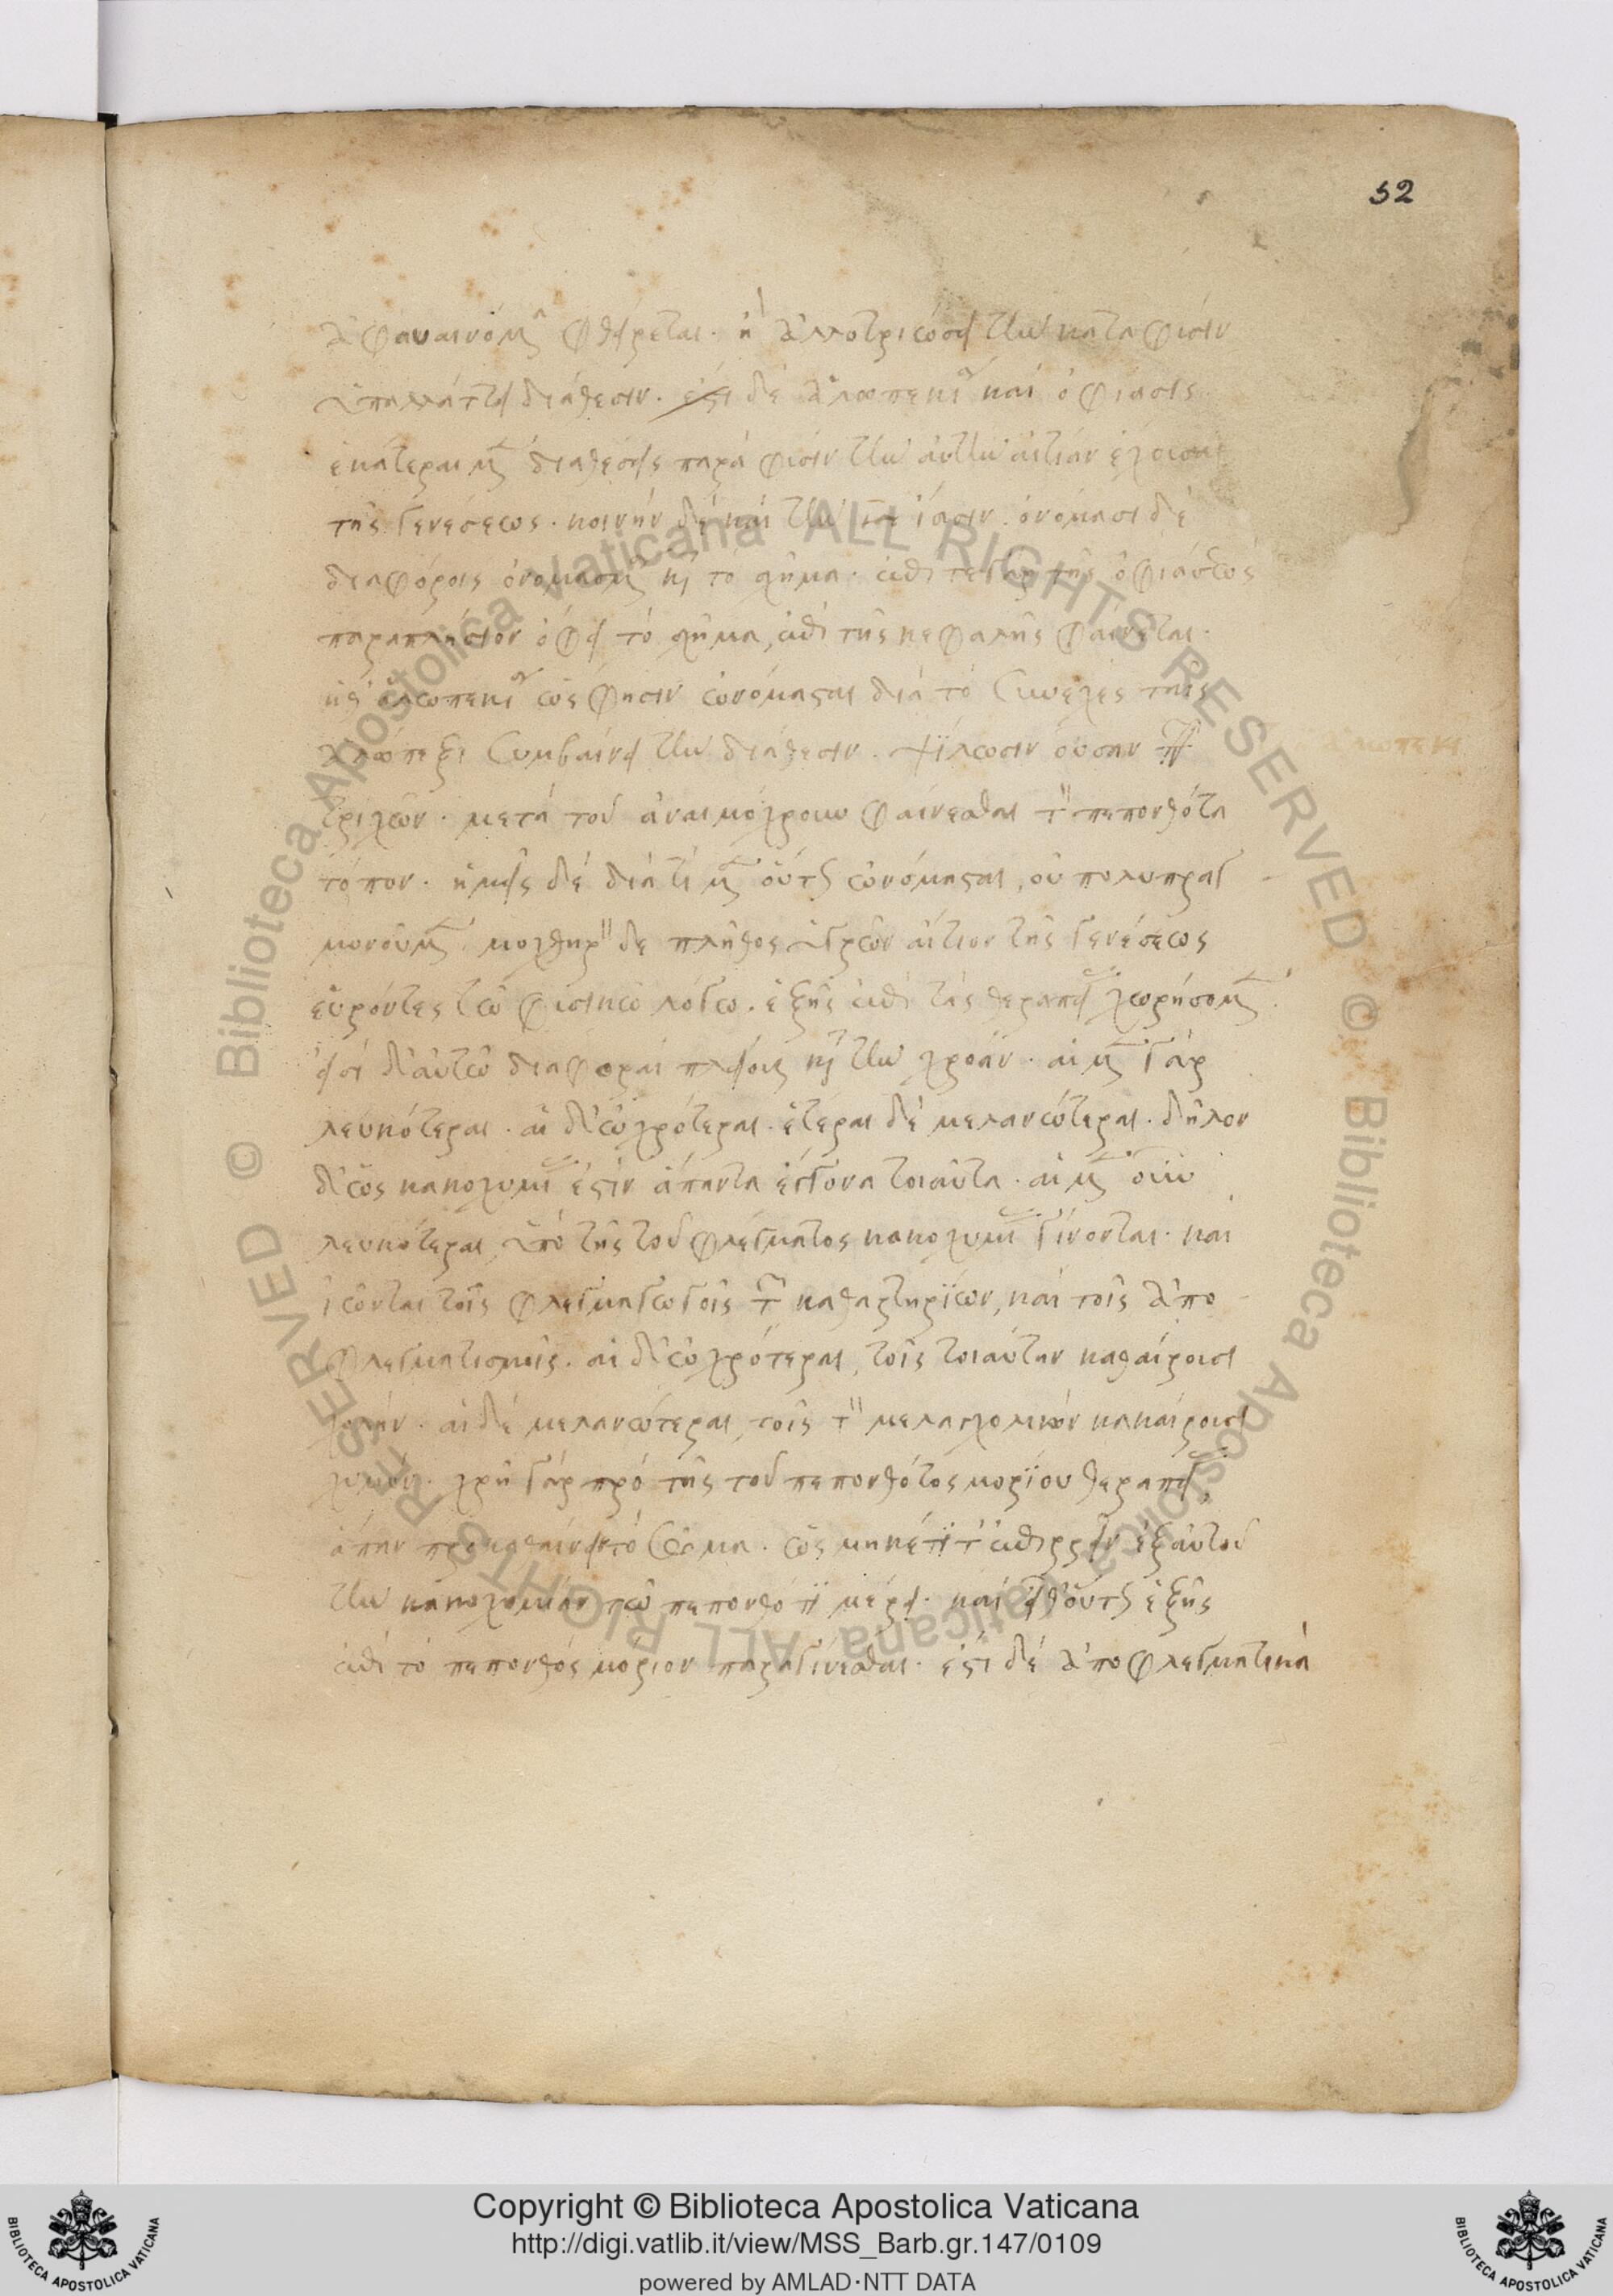 52
ἀφαναινόμενα φθείρεται· ἢ ἀλλοτριώσει τὴν κατὰ φύσιν
ὑπαλλάττει διάθεσιν. ἔστι δὲ ἀλωπεκία καὶ ὀφίασις
ἑκάτεραι μὲν διαθέσεις παρὰ φύσιν τὴν αὐτὴν αἰτίαν ἔχουσαι
τῆς γενέσεως· κοινὴν δὲ καὶ τὴν ἴασιν. ὀνόμασι δὲ
διαφόροις κατὰ τὸ σχῆμα· ἐπί τε γὰρ τῆς ὀφιάσεως
παραπλήσιον ὄφει τὸ σχῆμα, ἐπὶ τῆς κεφαλῆς φαίνεται·
ἀλωπεκία ὥς φησιν ὠνόμασται διὰ τὸ συνεχὲς ταῖς
ἀλώπεξι συμβαίνειν τὴν διάθεσιν. ψίλωσιν οὖσαν τῶν
ἀλωπεκι
τριχῶν· μετὰ τοῦ ἀναιμόχρουν φαίνεσθαι τὸν πεπονθότα
τόπον· ἡμεῖς δὲ διατί μὲν οὕτως ὠνόμασται, οὐ πολυπραγ
μονοῦμεν. μοχθηρὸν δὲ πλῆθος ὑγρῶν αἴτιον τῆς γενέσεως
εὑρόντες τῷ φυσικῷ λόγῳ. ἑξῆς ἐπὶ τὰς θεραπείας χωρήσομεν.
εἰσὶ δ' αὐτῶ διαφοραὶ πλείους κατὰ τὴν χροάν· αἱ μὲν γὰρ
λευκότεραι· αἱ δ' ὠχρότεραι· ἕτεραι δὲ μελανώτεραι· δῆλον
δ' ὡς κακοχυμίας ἐστὶν ἅπαντα ἔγγονα τοιαῦτα· αἱ μὲν οὖν
λευκότεραι, ὑπὸ τῆς τοῦ φλέγματος κακοχυμίας γίνονται· καὶ
ἰῶνται τοῖς φλεγμαγωγοῖς τῶν καθαρτηρίων, καὶ τοῖς ἀπο
φλεγματισμοῖς· αἱ δ' ὠχρότεραι, τοῖς τοιαύτην καθαίρουσι
χολήν· αἱ δὲ μελανώτεραι, τοῖς τὸν μελαγχολικὸν καθαίρουσι
χυμόν· χρὴ γὰρ πρὸ τῆς τοῦ πεπονθότος μορίου θεραπείας,
ἅπαν προκαθαίρειν τὸ σῶμα· ὡς μηκέτι ἐπιρρεῖν ἐξ αὐτοῦ
τὴν κακοχυμίαν τῷ πεπονθότι μέρει· καὶ εἶθ' οὕτως ἑξῆς
ἐπὶ τὸ πεπονθὸς μόριον παραγίνεσθαι· ἔστι δὲ ἀποφλεγματικὰ
Copyright © Biblioteca Apostolica Vaticana
http://digi.vatlib.it/view/MSS_Barb.gr.147/0109
powered by AMLAD·NTT DATA
BIBLIOTECA APOSTOLICA VATICANA
BIBLIOTECA APOSTOLICA VATICANA
© Biblioteca Apostolica Vaticana ALL RIGHTS RESERVED © Biblioteca Apostolica Vaticana ALL RIGHTS RESERVED